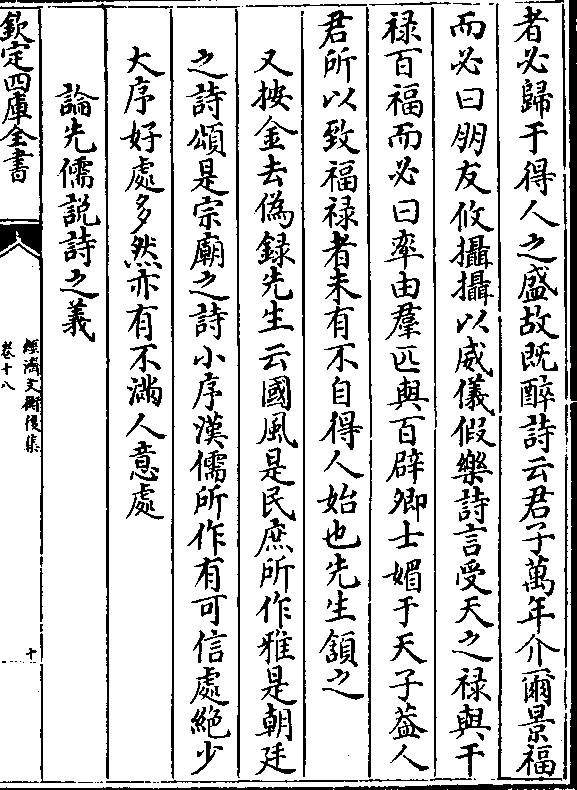 者必歸于得人之盛故既醉詩云君子萬年介爾景福
而必曰朋友攸攝攝以威儀假樂詩言受天之禄與干
禄百福而必曰率由羣匹與百辟卿士媚于天子葢人
君所以致福禄者未有不自得人始也先生頷之
又按金去偽録先生云國風是民庶所作雅是朝廷
之詩頌是宗廟之詩小序漢儒所作有可信處絶少
大序好處多然亦有不滿人意處
論先儒説詩之義
欽定四庫全書
經濟文衡後集
卷十八
十